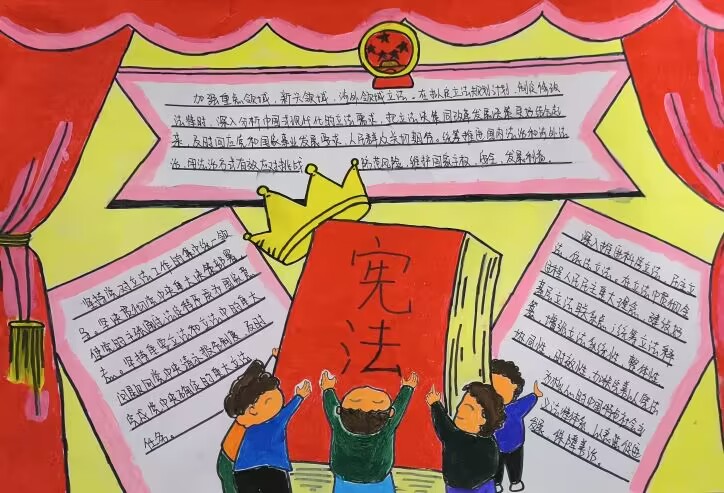 加强重点领域，新兴领域，涉外领域立法。在制定立法规划计划，制定修改
法律时，深入分析中国式现代化的立法需求，把立法决策同改革发展决策更好结合起
来，及时回应党和国家事业发展要求，人民群众关切期待。统筹推进国内法治和涉外法
治，用法治方式有效应对挑战 防范风险，维护国家主权，安全，发展利益。
宪
法
坚持党对立法工作的集中统一领
导。坚决贯彻党中央重大决策部署
使党的主张通过法定程序成为国家意
志。坚持重要立法和立法中的重大
问题向党中央请示报告制度，及时
贯彻党中央确定的重大立法
任务。
深入推进科学立法，民主立
法，依法立法。在立法中贯彻全
过程人民民主重大理念，建设好
基层立法联系点，统筹立法释
纂，增强立法系统性，整体性
协同性，时效性，加快完善以宪法
为核心的中国特色社会主
义法律体系，以良法促进
发展，保障善治。